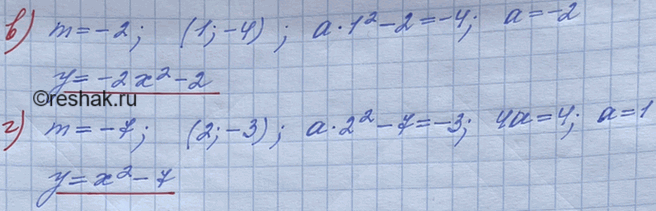 в) m = -2; (1; -4); a·1² - 2 = -4; a = -2
y = -2x² - 2
©reshak.ru
г) m = -7; (2; -3); a·2² - 7 = -3; 4a = 4; a = 1
y = x² - 7